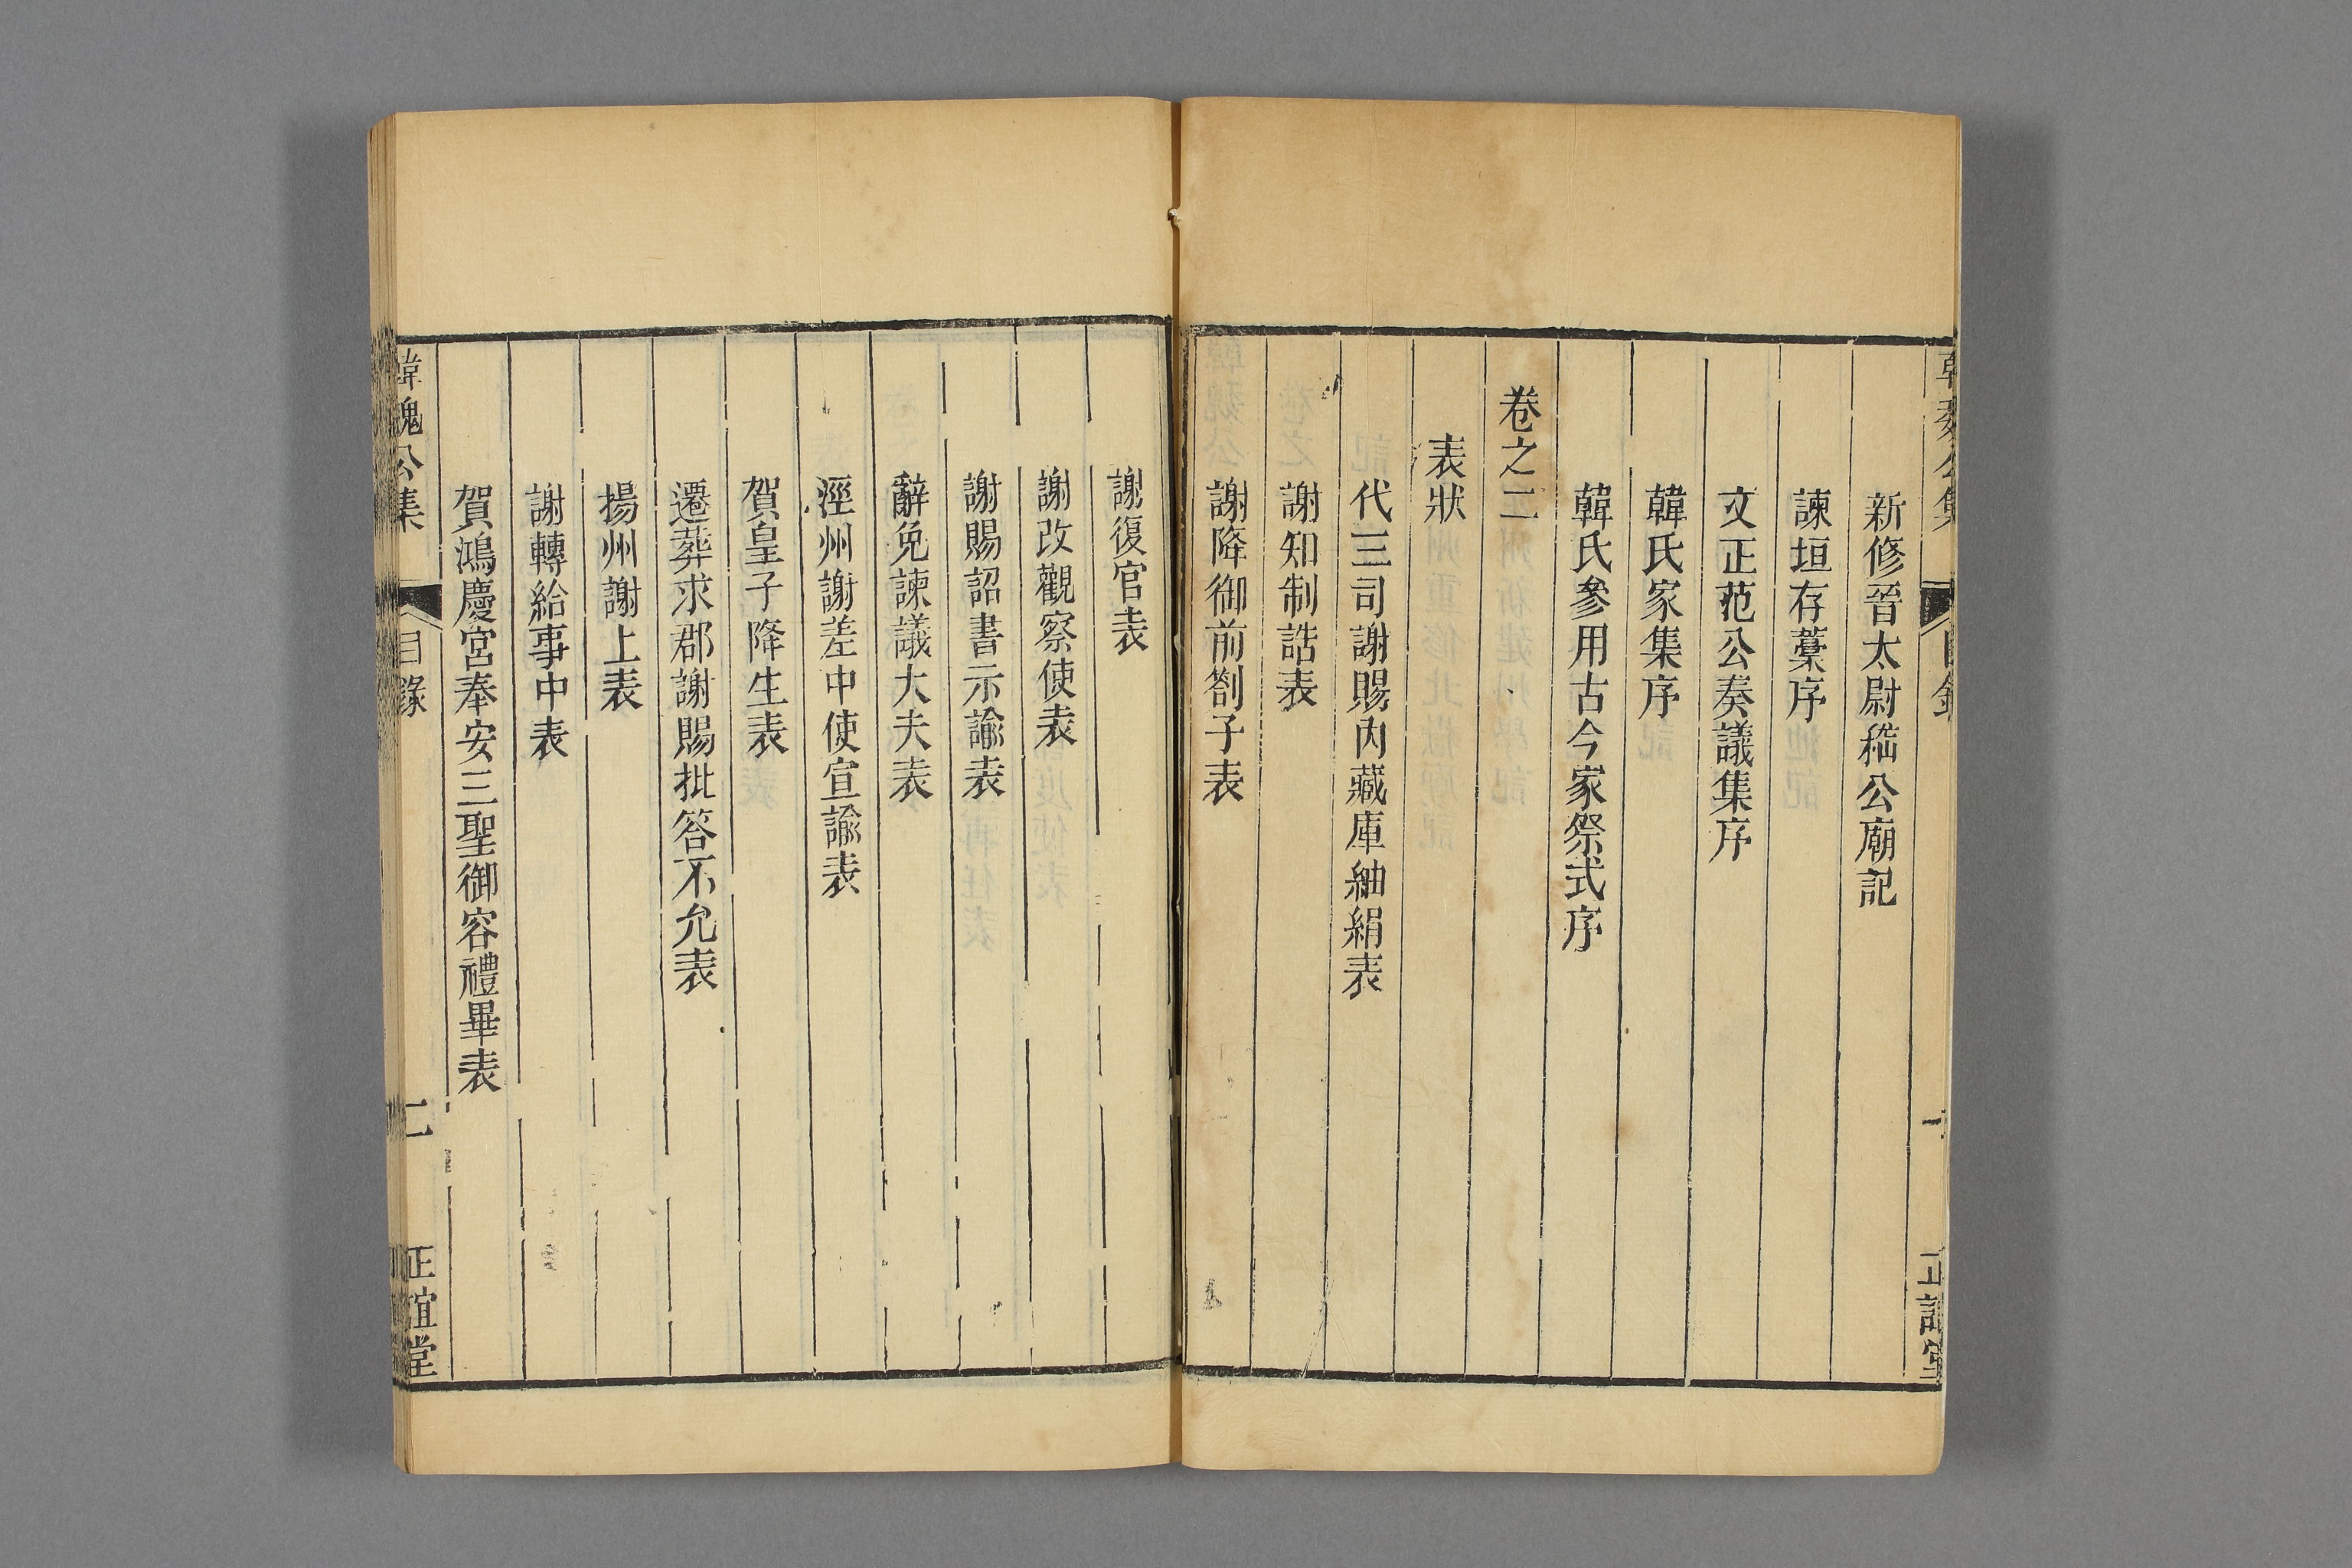 新修晉太尉嵇公廟記
諫垣存藁序
文正范公奏議集序
韓氏家集序
韓氏參用古今家祭式序
卷之二
表狀
代三司謝賜內藏庫紬絹表
謝知制誥表
謝降御前劄子表
謝復官表
謝改觀察使表
謝賜詔書示諭表
辭免諫議大夫表
涇州謝差中使宣諭表
賀皇子降生表
遷葬求郡謝賜批答不允表
揚州謝上表
謝轉給事中表
賀鴻慶宮奉安三聖御容禮畢表
韓魏公集
目錄
二
正誼堂